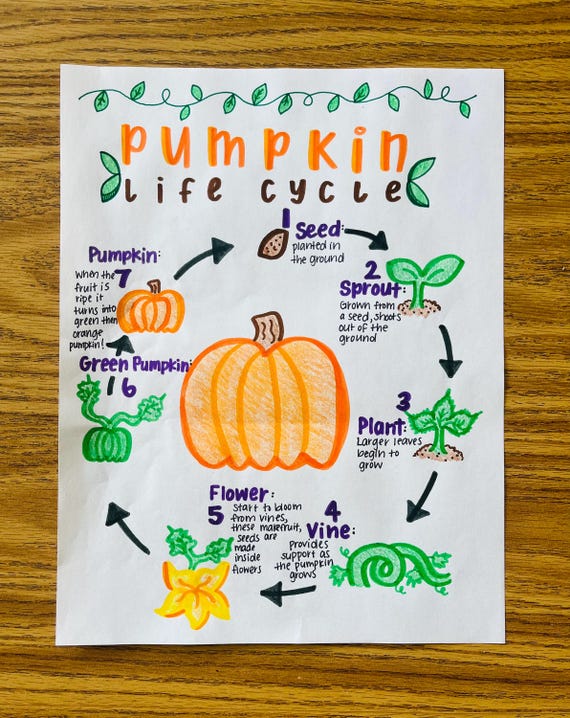 pumpkin
life cycle
1 Seed:
planted in
the ground
2
Sprout:
Grown from
a seed, shoots
out of the
ground
3
Plant:
Larger leaves
begin to
grow
4
Vine:
Provides
support as
the pumpkin
grows
Flower:
5
Start to bloom
from vines,
these make fruit,
seeds are
made
inside
flowers
Green Pumpkin:
6
Pumpkin:
7
When the
fruit is
ripe it
turns into
green then
orange
pumpkin!